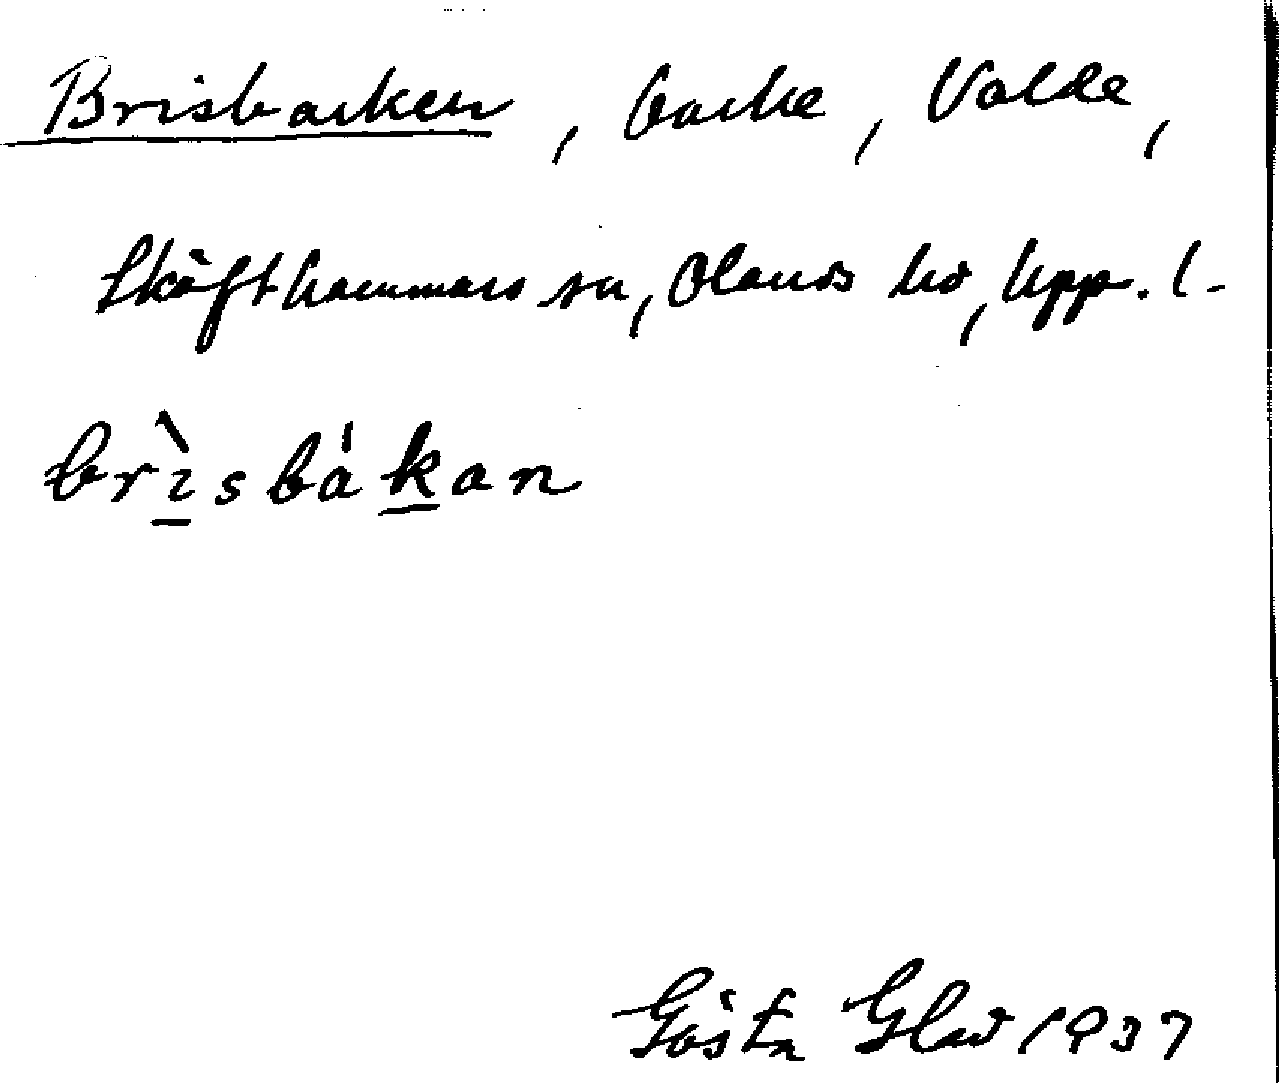 Brisbacken, backe, Valde,
Skäfthammars sn, Olands hd, Uppl.
brìsbákan
Gösta Glad 1937